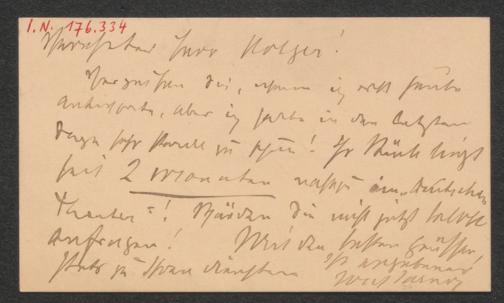 I.N. 176.334
Verehrter Herr Holzer!
Verzeihen Sie, wenn ich erst heute
antworte, aber ich hatte in den letzten
Tagen sehr viel zu thun! Ihr Stück liegt
seit 2 Monaten im „Deutschen
Theater"! Würden Sie nicht jetzt selbst
anfragen! Mit den besten Grüssen
stets zu Ihren Diensten Ihr ergebener